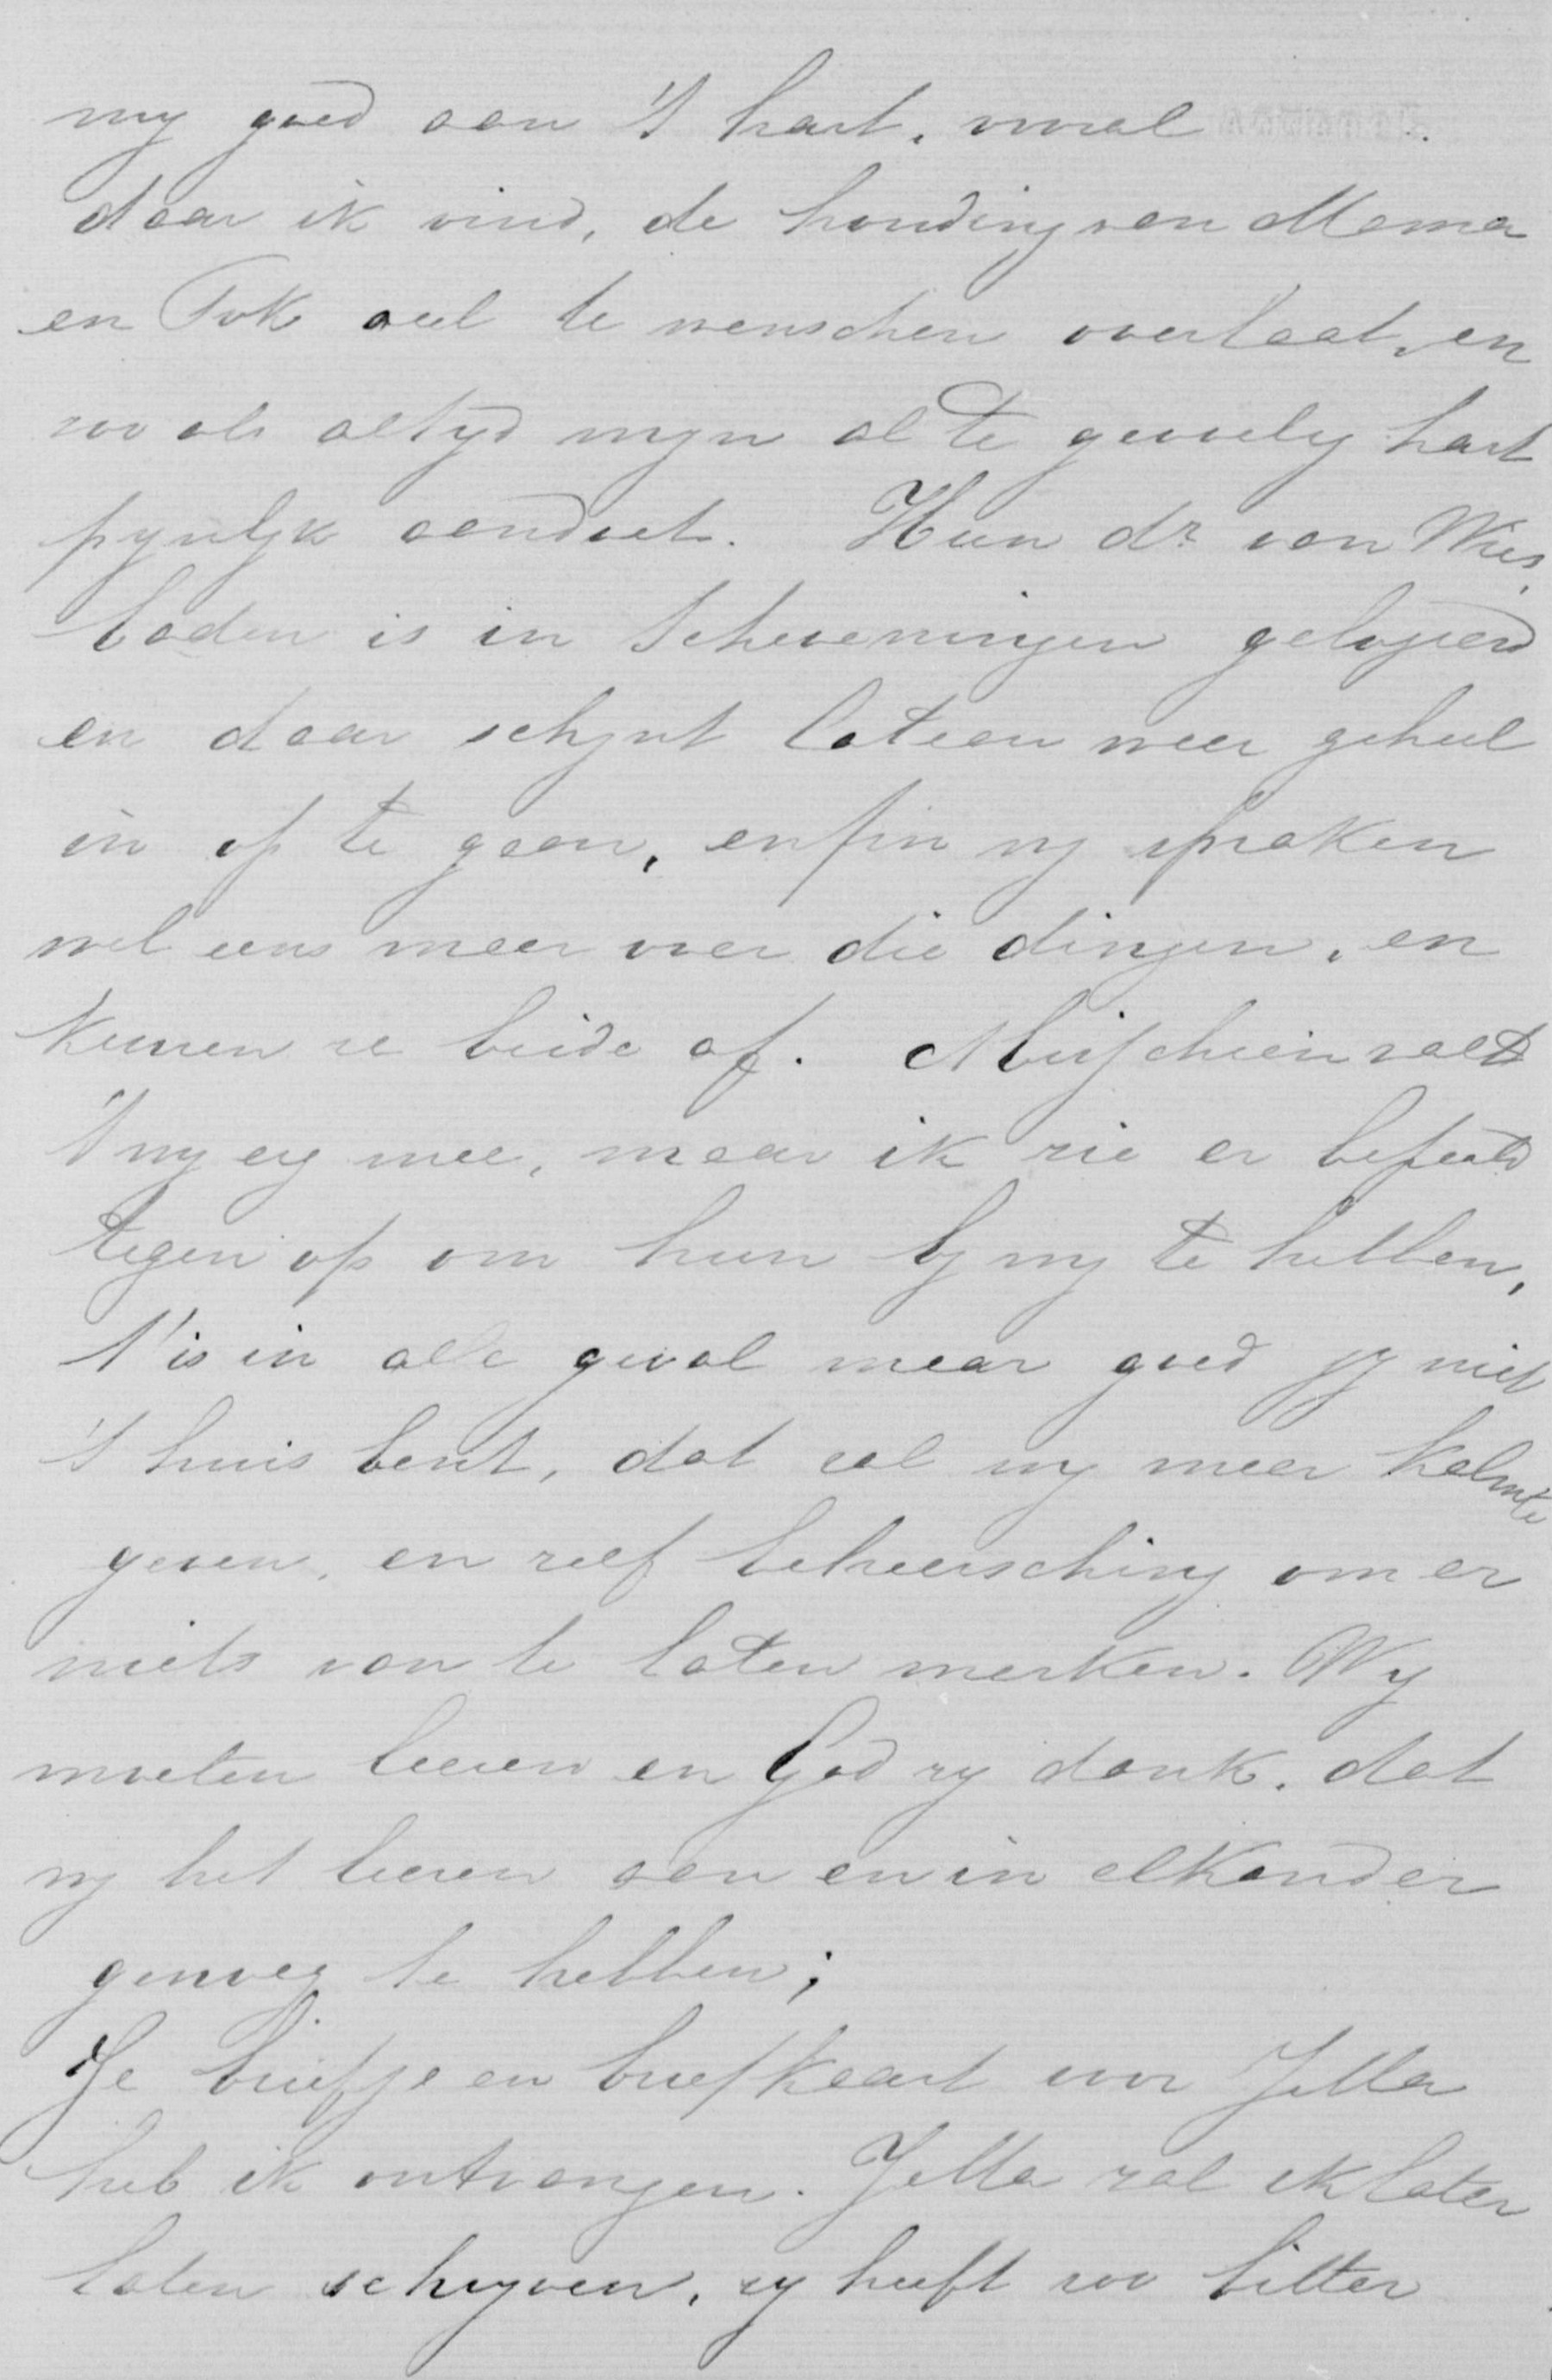 my goed aan 't hart, vooral
daar ik vind, de houding van Mama
en Tok veel te wenschen overlaat, en
zoo als altyd myn al te gevoelig hart
pynlyk aandoet. Hun dr van Wies
baden is in Scheveningen gelogeerd
en daar schynt latean weer geheel
in op te gaan, enfin wy spraken
wel eens meer over die dingen, en
kennen ze beide af. Misschien valt
't my erg mee, maar ik zie er bepaald
tegen op om hun by my te hebben,
t'is in alle geval maar goed jy niet
't huis bent, dat zal my meer kalmte
geven, en zelf beheersching om er
niets van te laten merken. Wy
moeten leeren en God zy dank, dat
wy het leeren aan en in elkander
genoeg te hebben;
Je briefje en briefkaart voor Jella
heb ik ontvangen. Jella zal ik later
laten schryven, zy heeft zoo bitter